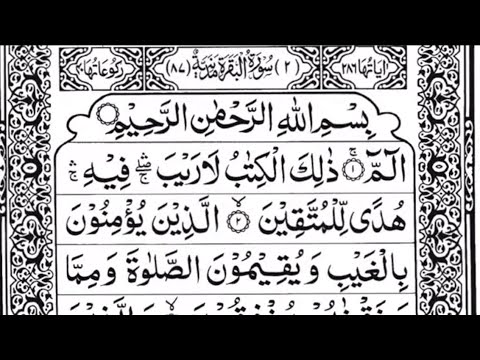 اٰیَاتُهَا ٢٨٦ (٢) سُوْرَةُ الْبَقَرَةِ مَدَنِيَّةٌ (٨٧) رُكُوْعَاتُهَا
بِسْمِ اللّٰهِ الرَّحْمٰنِ الرَّحِيْمِ
الٓمّٓ ۚ ١ ذٰلِكَ الْكِتٰبُ لَا رَيْبَ ۛۖۚ فِيْهِ ۛۚ
هُدًى لِّلْمُتَّقِيْنَ ۙ ٢ الَّذِيْنَ يُؤْمِنُوْنَ
بِالْغَيْبِ وَيُقِيْمُوْنَ الصَّلٰوةَ وَمِمَّا